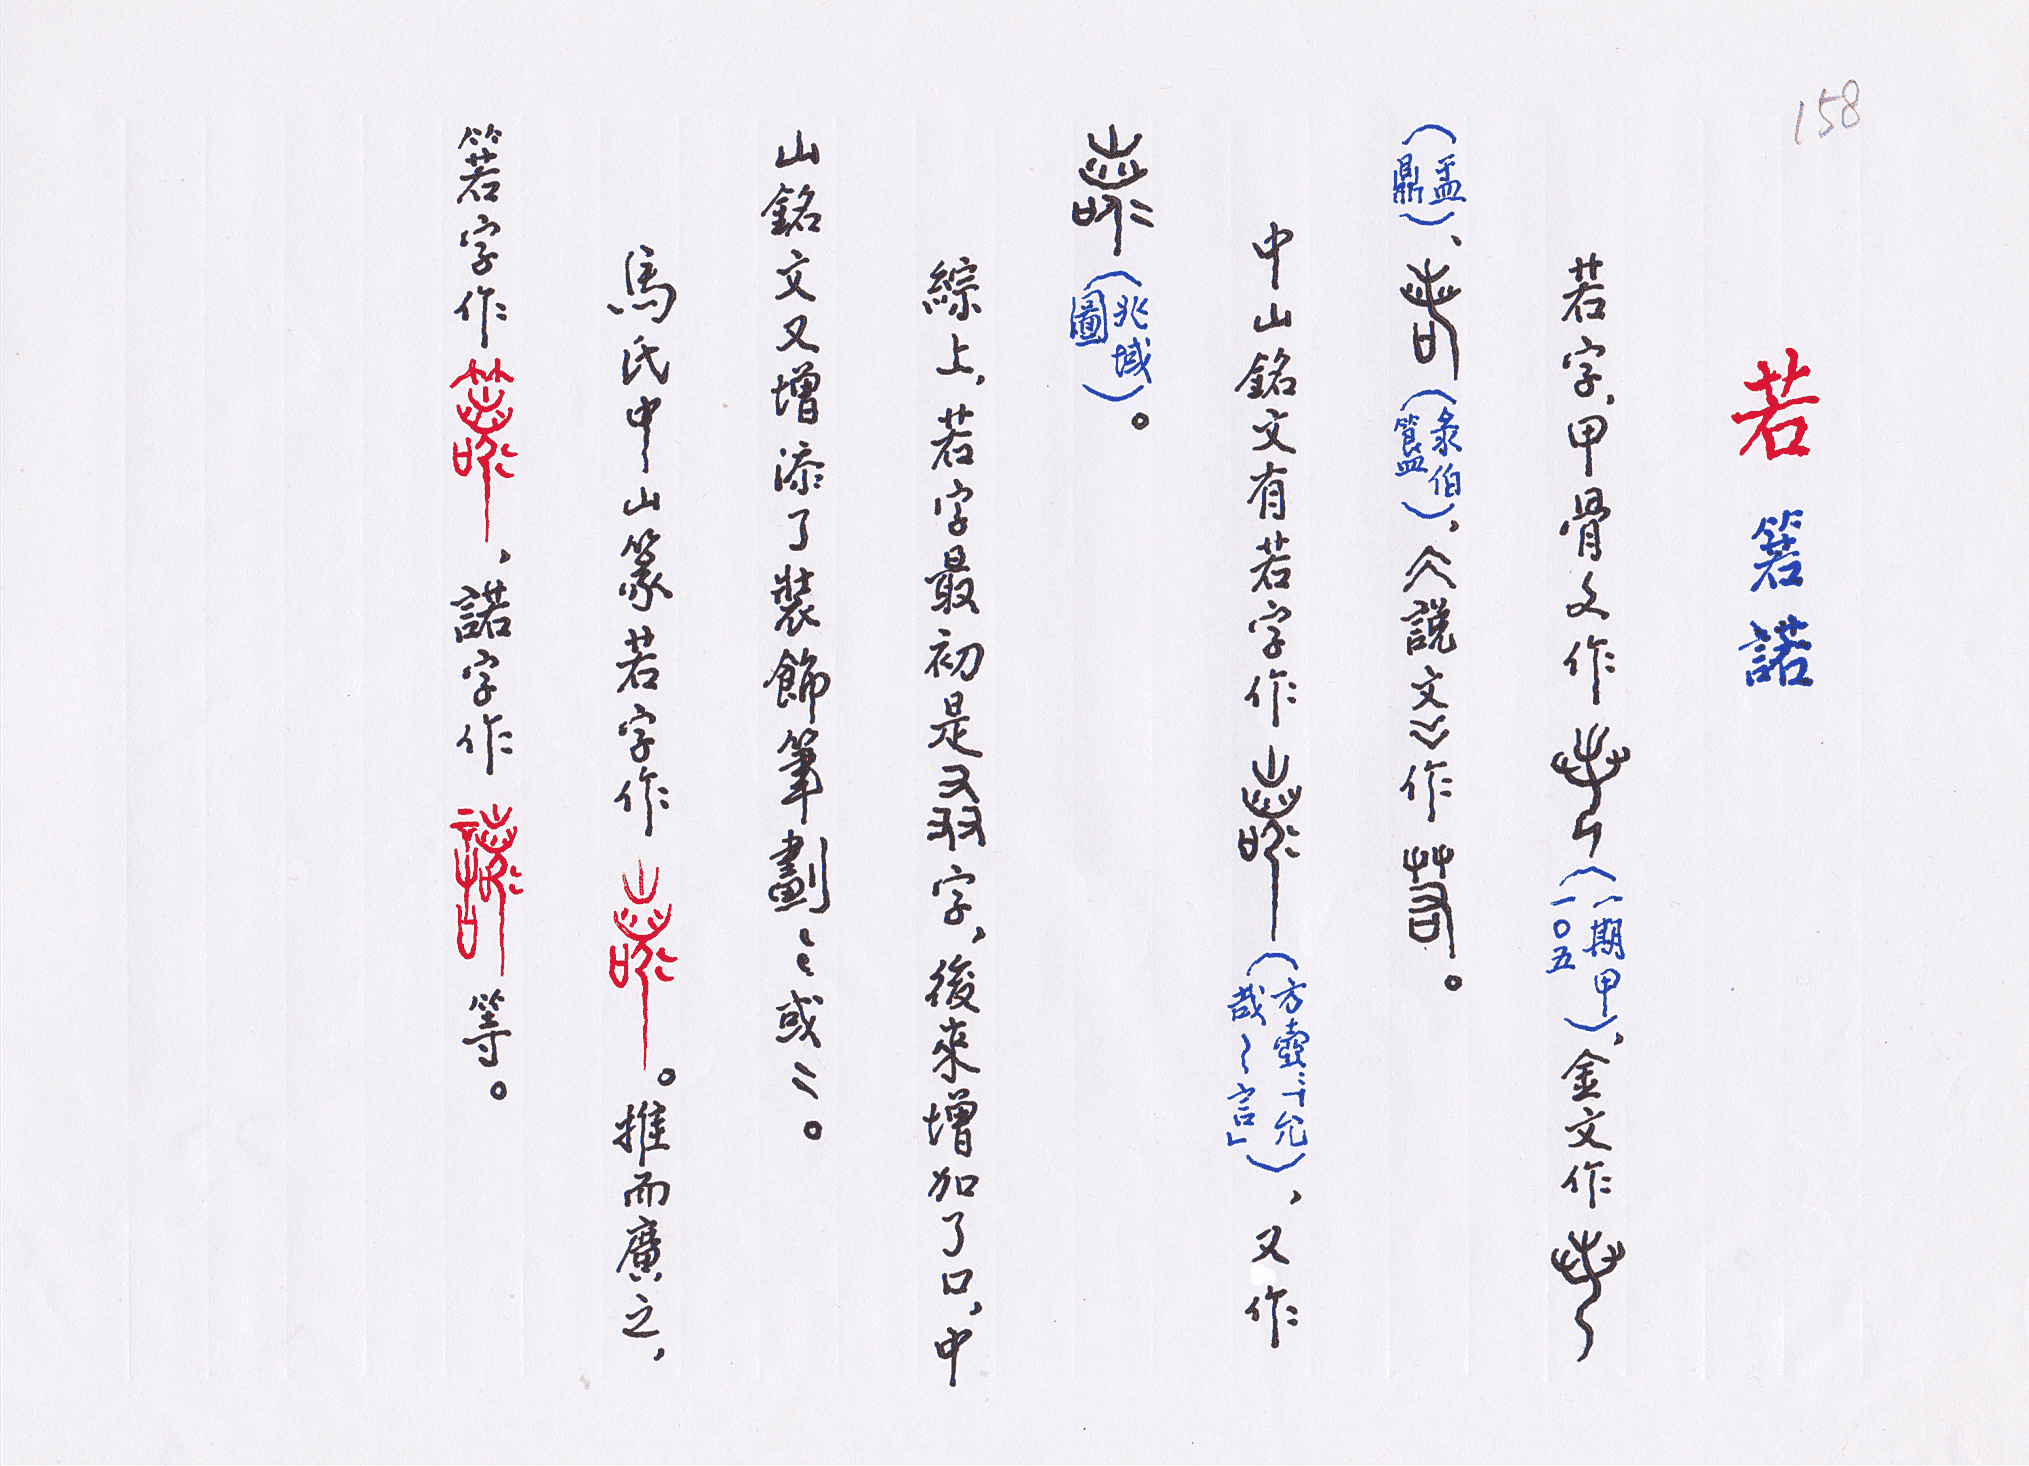 158
若 箬 諾
若字,甲骨文作(一期甲一〇五),金文作
(盂鼎)、(彔伯簋),《說文》作。
中山銘文有若字作(方壺「允哉若言」),又作
(兆域圖)。
綜上,若字最初是叒字,後來增加了口,中
山銘文又增添了裝飾筆劃或二。
馬氏中山篆若字作。推而廣之,
箬字作,諾字作等。